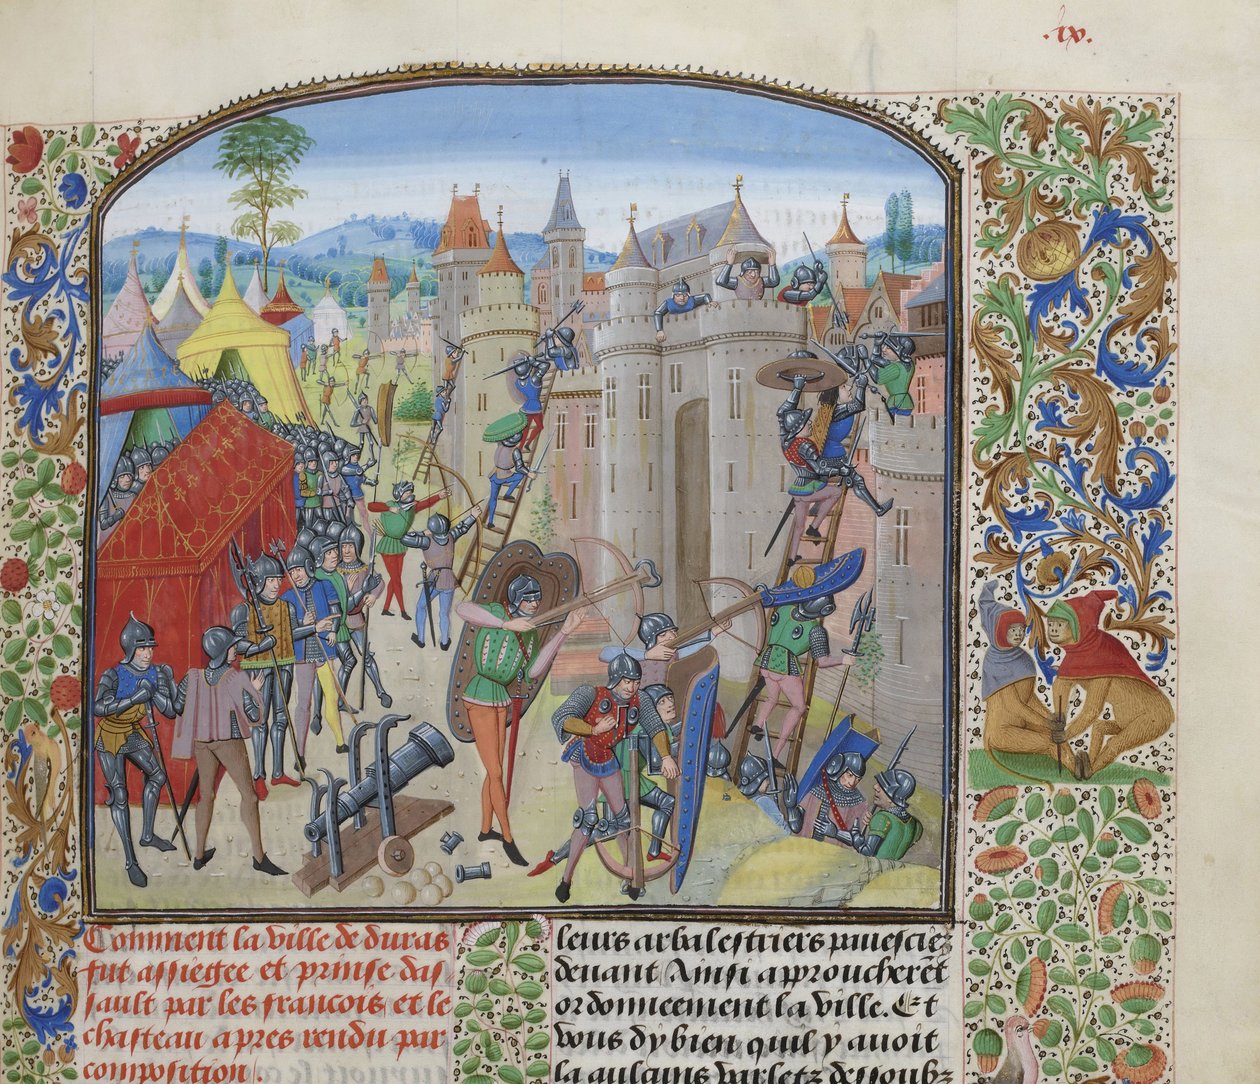 .lx.
Comment la ville de duras
fut assiegee et prinse das
sault par les francois et le
chasteau apres rendu par
composition.
leurs arbalestriers pauesciez
deuant Ainsi approucherēt
ordonneement la ville. Et
vous dy bien quil y auoit
la aulcuns varletz dessoubz